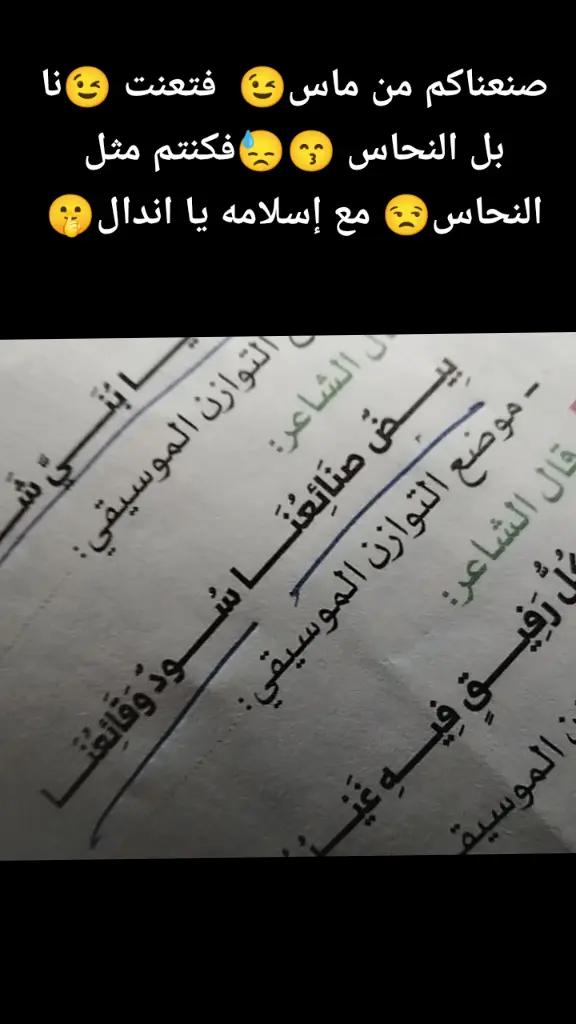 صنعناكم من ماس😉 فتعنت 😉نا
بل النحاس 😙😓فكنتم مثل
النحاس😒 مع إسلامه يا اندال🤫
ـا بُنَـــيَّ
التوازن الموسيقي:
قال الشاعر:
بِيــــضٌ صَنَائِعُنَـــا سُـــودٌ وَقَائِعُنَـــا
- موضع التوازن الموسيقي:
قال الشاعر:
كُلُّ رَفِيـــقٍ فِيـــهِ
الموسيقي